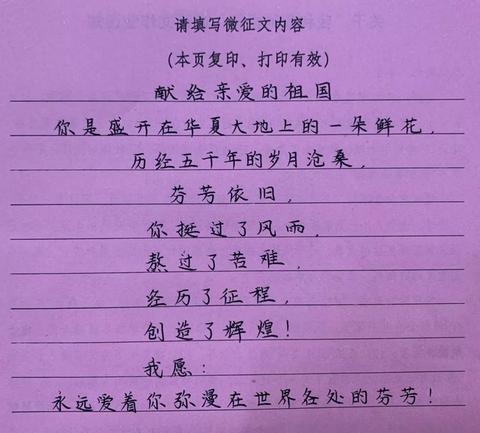 请填写微征文内容
(本页复印、打印有效)
献给亲爱的祖国
你是盛开在华夏大地上的一朵鲜花，
历经五千年的岁月沧桑，
芬芳依旧，
你挺过了风雨，
熬过了苦难，
经历了征程，
创造了辉煌！
我愿：
永远爱着你弥漫在世界各处的芬芳！